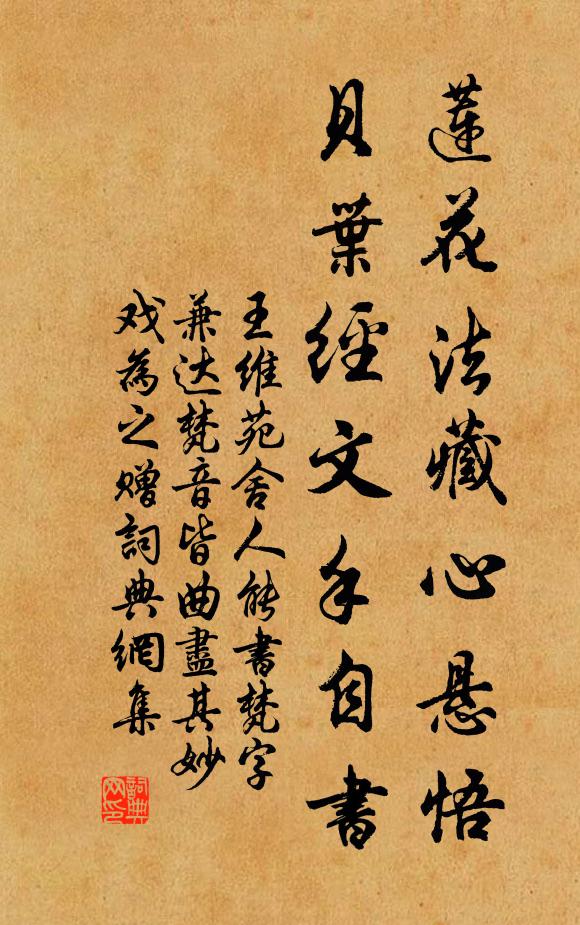 蓮花法藏心悬悟
貝葉經文手自書
王維苑舍人能書梵字
兼达梵音皆曲盡其妙
戏為之赠詞典網集
詞典网印